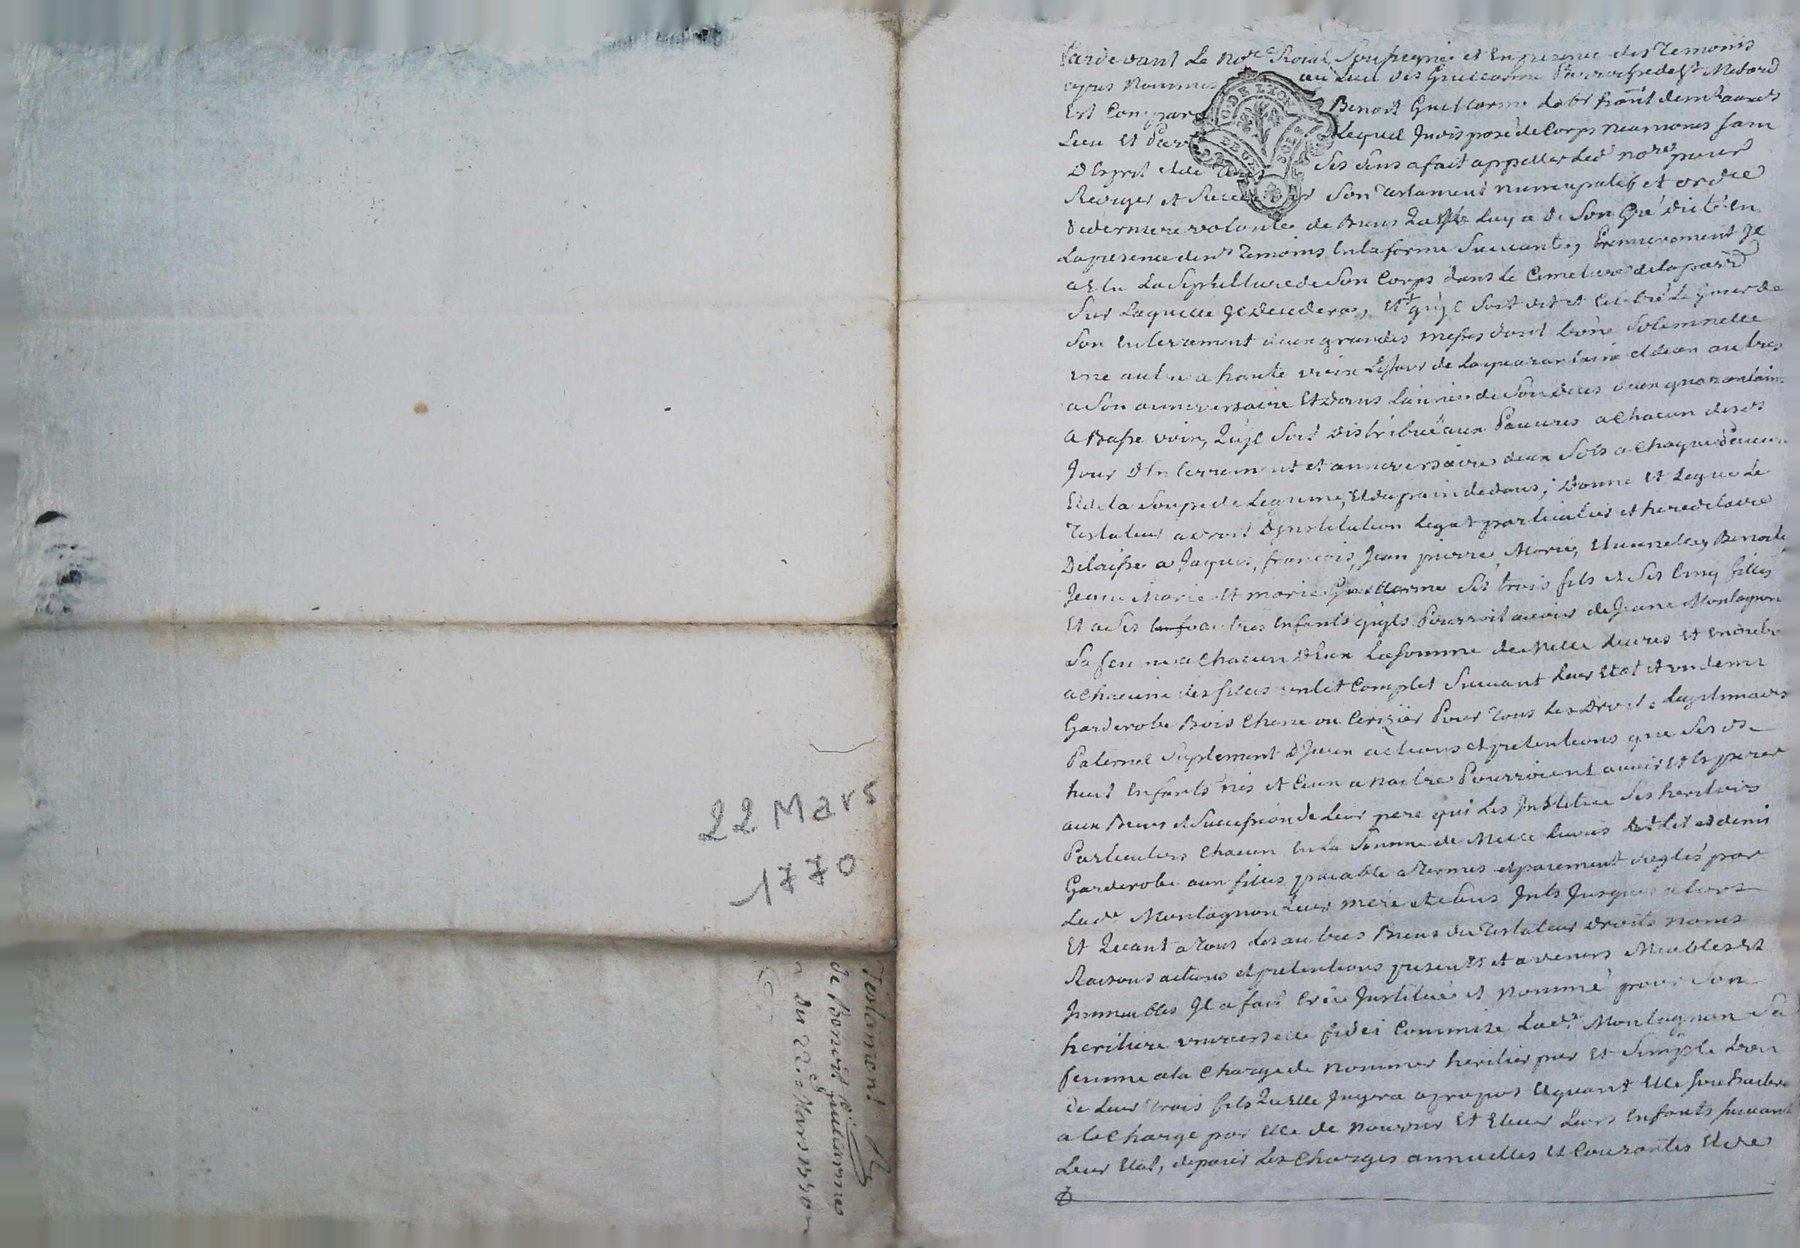 22 Mars
1770
Testament
de Benoit Guillarme
du 22e Mars 1770
Pardevant Le no.re Roial Soussigné et En presence des Temoins
cyprés Nommés au Lieu des Guillarme Parroisse de St Medard
Est Compar Benoit Guillarme
Lieu et Parr Lequel Indisposé de Corps neamoins sain
D'Esprit et de ses sens a fait appeller Led no.re pour
Rediger et Son Testament nuncupatif et ordre
De derniere volonté de Biens Luy a De Son Gré dicté En
La presence des Temoins En la forme Suivante, Premierement Il
a Elu La Sepulture de Son Corps dans Le Cimetiere de la parr
Sur Laquelle Il decedera, et qu'il Soit dit et Celebré Le Jour de
Son Enterrement deux grandes messes dont Solemnelle
une autre a haute voix Le Jour de La quarantaine et deux autres
a Son anniversaire Et dans L'année de Son deces deux quarantaine
a Basse voix, Qu'il Soit Distribué aux Pauvres a Chacun desds
Jour D'Enterrement et anniversaire deux Sols a Chaque Pauvre
Et de la Soupe de Legume, Et du pain dedans; Donne et Legue Le
Testateur a Droit D'Institution Legat particulier et hereditaire
Delaisse a Jaques, françois, Jean pierre, Marie, Benoite
Jeane Marie et marie Guillarme Ses trois fils et Ses Cinq filles
Et a Ses autres Enfants qu'ils Pourroit avoir de Jeane Montagnon
Sa femme a Chacun D'Eux La Somme de Mille Livres Et
a Chacune des filles un Lit Complet Suivant Leur Etat et un demi
Garderobe Bois Chene ou Cerizier Pour Tous Les Droits Legitimaires
Paternel Suplement D'Iceux actions et pretentions que Sesds
huit Enfants nés et Ceux a naitre Pourroient avoir Et Esperer
aux Biens et Succession de Leur pere qui Les Institue Ses heritiers
Particuliers Chacun En La Somme de Mille Livres Lit et demi
Garderobe aux filles paiable a Termes et paiement reglés par
Lad.e Montagnon Leur mere et Sans Inth Jusques alors
Et Quant a Tous Les autres Biens du Testateur Droits noms
Raisons actions et pretentions presents et avenirs Meubles et
Immeubles Il a fait Crée Institué et Nommé pour Son
heritiere universelle fidei Commise Lad.e Montagnon Sa
femme a la Charge de Nommer heritier pur et Simple L'un
De Leur Trois fils Qu'elle Jugera apropos
a la Charge par Elle de Nourrir Et Elever Leurs Enfants Suivant
Leur Etat, depaier Les Charges annuelles et Courantes Et de